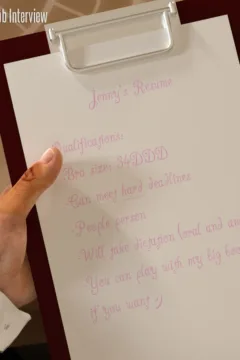 ob Interview
Jenny's Resume
Qualifications:
-Bra size: 34DDD
-Can meet hard deadlines
-People person
-Will take (oral and
-You can play with my big
if you want ;)